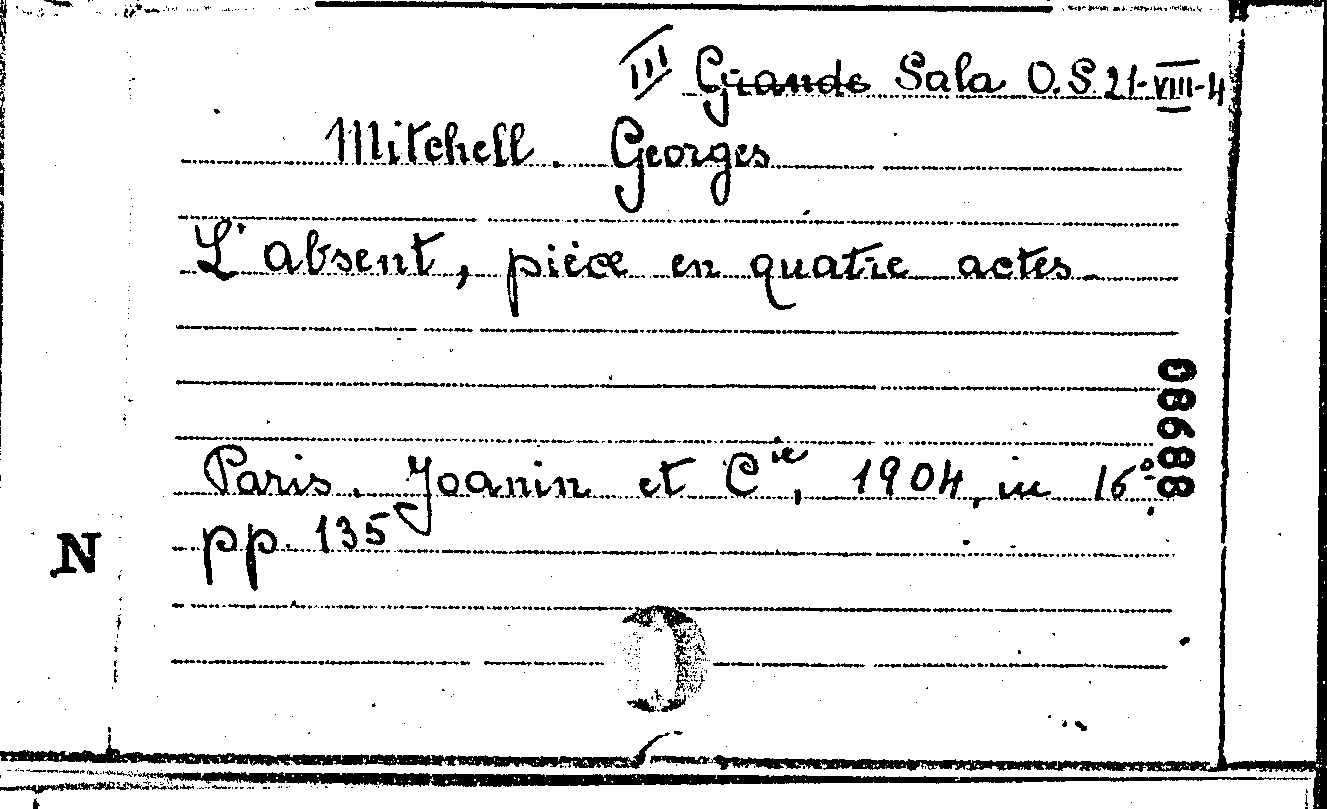 III Grande Sala O.S. 21-VIII-4
Mitchell. Georges
L'absent, pièce en quatre actes.
Paris. Joanin et Cie, 1904, in 16°.
pp. 135
N
08688